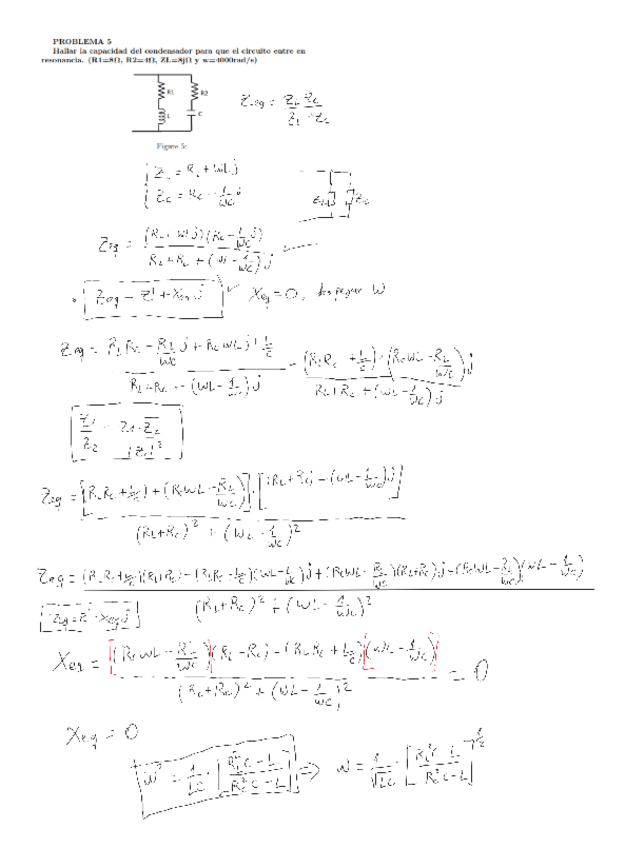 PROBLEMA 5
Hallar la capacidad del condensador para que el circuito entre en
resonancia. (R1=8Ω, R2=4Ω, ZL=8jΩ y w=4000rad/s)
R1
R2
L
C
Zeq = Z_L Z_C / Z_L + Z_C
Figure 5:
Z_L = R_L + WLj
Z_C = R_C - 1/WC j
Z_L
Z_C
Zeq = (R_L + WLj)(R_C - 1/WC j) / R_L + R_C + (WL - 1/WC)j
Zeq = Z' + Xeq j
Xeq = 0, despejar W
Zeq = R_L R_C - R_L/WC j + R_C WLj + L/C / R_L + R_C + (WL - 1/WC)j = (R_L R_C + L/C) + (R_C WL - R_L/WC)j / R_L + R_C + (WL - 1/WC)j
Z1/Z2 = Z1·Z̅2 / |Z2|²
Zeq = [(R_L R_C + L/C) + (R_C WL - R_L/WC)j]·[(R_L + R_C) - (WL - 1/WC)j] / (R_L + R_C)² + (WL - 1/WC)²
Zeq = (R_L R_C + L/C)(R_L + R_C) - (R_L R_C + L/C)(WL - 1/WC)j + (R_C WL - R_L/WC)(R_L + R_C)j + (R_C WL - R_L/WC)(WL - 1/WC) / (R_L + R_C)² + (WL - 1/WC)²
Zeq = Z' + Xeq j
Xeq = (R_C WL - R_L/WC)(R_L + R_C) - (R_L R_C + L/C)(WL - 1/WC) / (R_L + R_C)² + (WL - 1/WC)² = 0
Xeq = 0
W² = 1/LC · [R_L² C - L / R_C² C - L] ⇒ W = 1/√LC · [R_L² C - L / R_C² C - L]^1/2